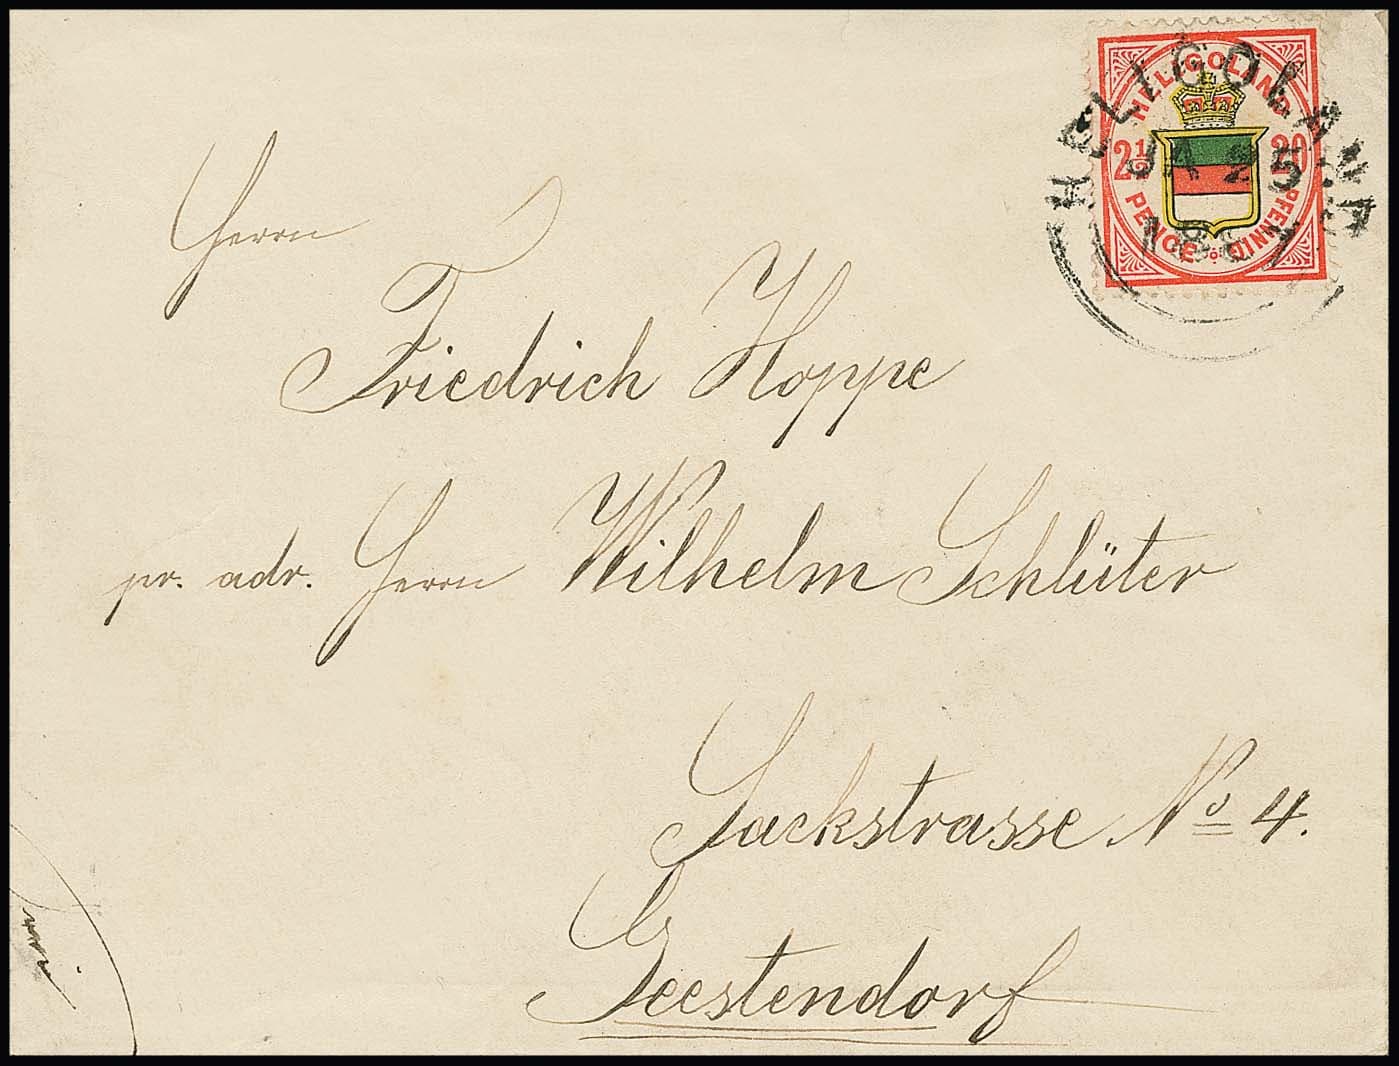 HELIGOLAND
2½ 20
PENCE. PFENNIG
HELIGOLAND
JA 25
188
Herrn
Friedrich Hoppe
pr. adr. Herrn Wilhelm Schlüter
Sackstrasse No 4.
Geestendorf